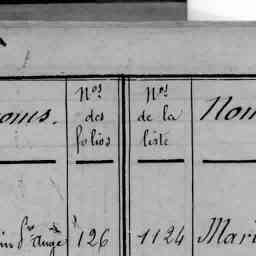 oms.
Nos
des
folios
Nos
de la
liste
Nom
126
1124
Mari